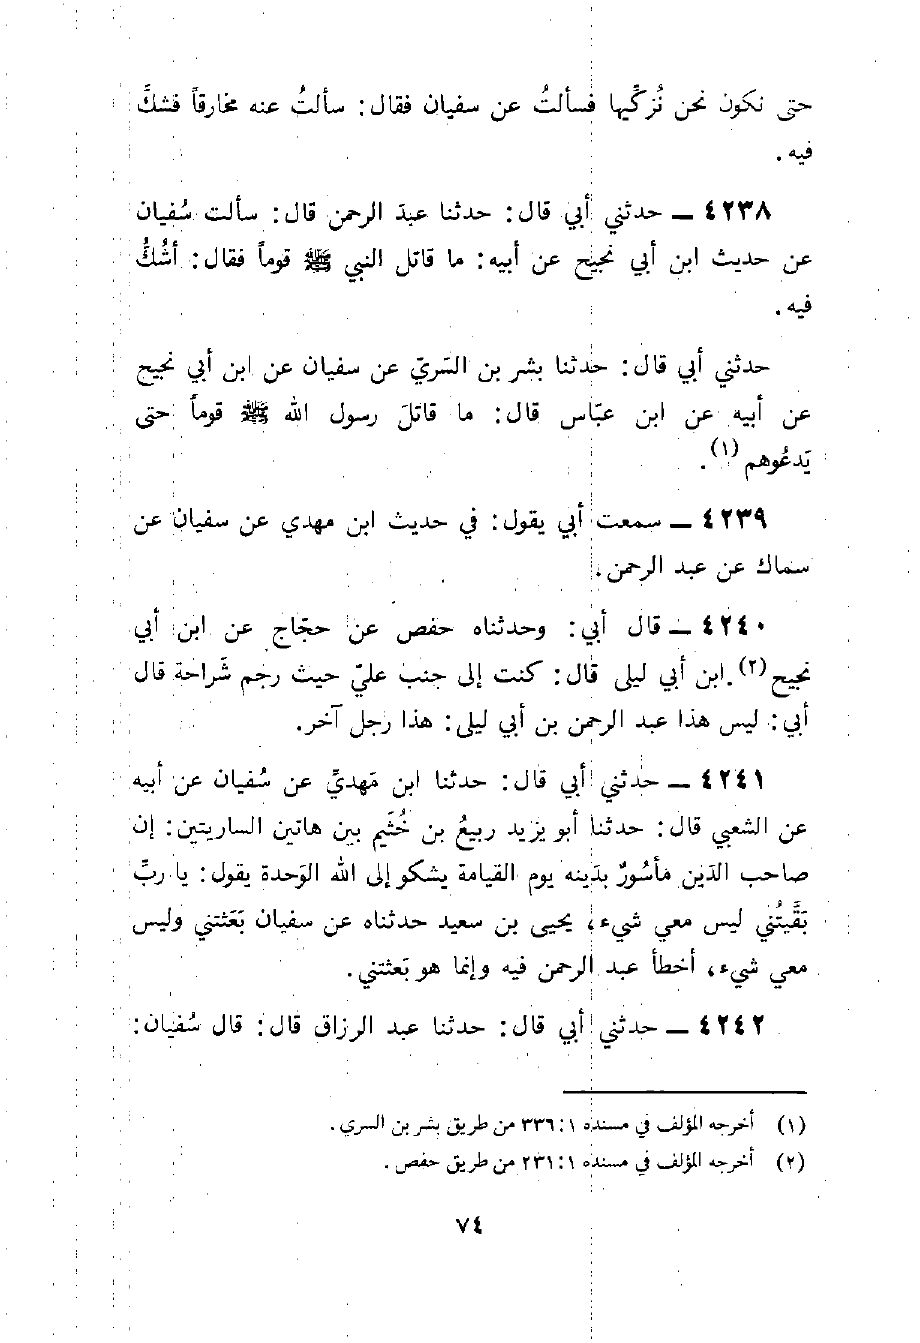 حتى نكون نحن نُزكِّيها فسألتُ عن سفيان فقال: سألتُ عنه مخارقاً فشكَّ
فيه.
٤٢٣٨ ــ حدثني أبي قال: حدثنا عبدَ الرحمن قال: سألت سُفيان
عن حديث ابن أبي نجيح عن أبيه: ما قاتل النبي ﷺ قوماً فقال: أشُكُّ
فيه.
حدثني أبي قال: حدثنا بشر بن السَريّ عن سفيان عن ابن أبي نجيح
عن أبيه عن ابن عبّاس قال: ما قاتلَ رسول الله ﷺ قوماً حتى
يَدعُوهم(١).
٤٢٣٩ ــ سمعت أبي يقول: في حديث ابن مهدي عن سفيان عن
سماك عن عبد الرحمن.
٤٢٤٠ ــ قال أبي: وحدثناه حفص عن حجّاج عن ابن أبي
نجيح(٢).ابن أبي ليلى قال: كنت إلى جنب عليّ حيث رجم شَراحة قال
أبي: ليس هذا عبد الرحمن بن أبي ليلى: هذا رجل آخر.
٤٢٤١ ــ حدثني أبي قال: حدثنا ابن مَهديّ عن سُفيان عن أبيه
عن الشعبي قال: حدثنا أبو يزيد ربيعُ بن خُثَيم بين هاتين الساريتين: إن
صاحب الدَين مأسُورٌ بدَينه يوم القيامة يشكو إلى الله الوَحدة يقول: يا ربِّ
بَقَّيتُني ليس معي شيء، يحيى بن سعيد حدثناه عن سفيان بَعَثتني وليس
معي شيء، أخطأ عبد الرحمن فيه وإنما هو بَعثتني.
٤٢٤٢ ــ حدثني أبي قال: حدثنا عبد الرزاق قال: قال سُفيان:
(١) أخرجه المؤلف في مسنده ١: ٣٣٦ من طريق بشر بن السري.
(٢) أخرجه المؤلف في مسنده ١: ٢٣١ من طريق حفص.
٧٤